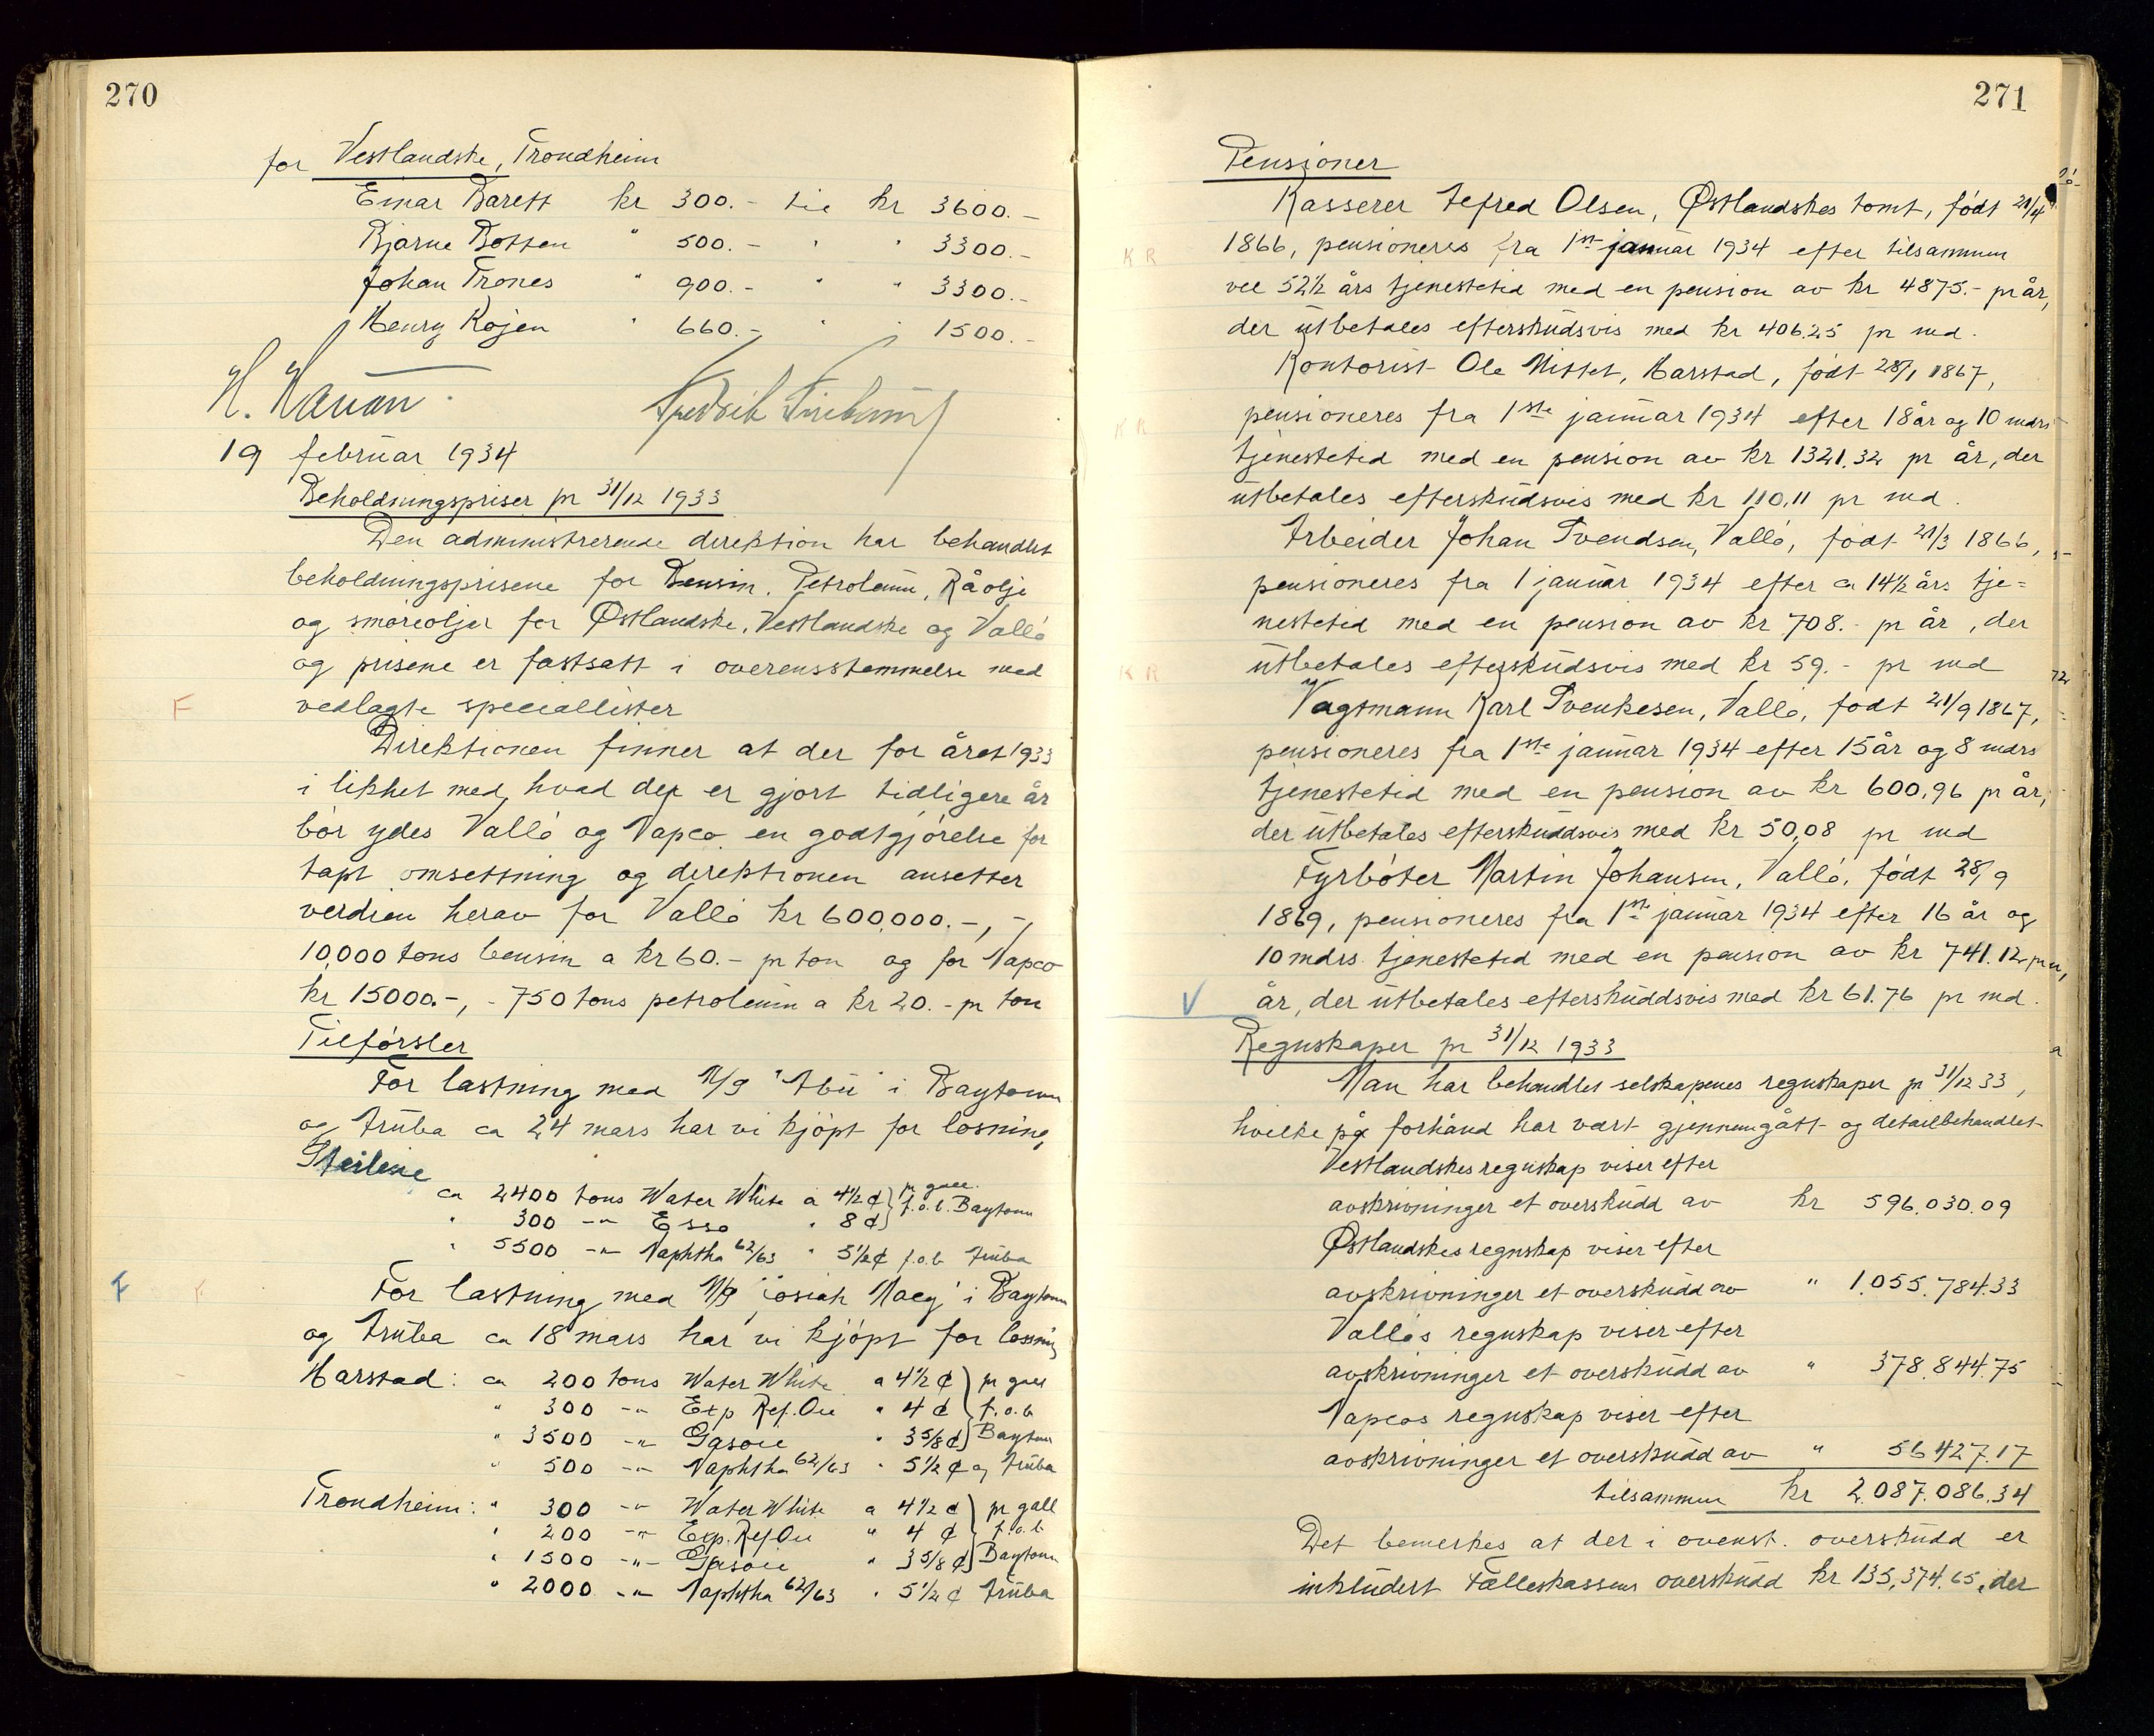 270
for Vestlandske, Trondheim
Einar Barett kr 300.- til kr 3600.-
Bjarne Botten " 500.- " " 3300.-
Johan Trones " 900.- " " 3300.-
Henry Røjen " 660.- " " 1500.-
H. Hanan
19 februar 1934
Beholdningspriser pr 31/12 1933
Den administrerende direktion har behandlet
beholdningsprisene for Bensin, Petroleum, Råolje
og smøreoljer for Østlandske, Vestlandske og Vallø
og prisene er fastsatt i overensstemmelse med
F vedlagte speciallister
Direktionen finner at der for året 1933
i likhet med hvad der er gjort tidligere år
bør ydes Vallø og Vapco en godtgjørelse for
tapt omsettning og direktionen ansetter
verdien herav for Vallø kr 600,000.-, -
10,000 tons bensin a kr 60.- pr ton og for Vapco
kr 15000.-, - 750 tons petroleum a kr 20.- pr ton
Tilførsler
For lastning med M/S "Abu" i Baytown
og Aruba ca 24 mars har vi kjøpt for losning,
Steilene
ca 2400 tons Water White a 4½ ¢ pr gall.
" 300 -"- Esso " 8 ¢ f.o.b. Baytown
" 5500 -"- Naphtha 62/63 " 5½ ¢ f.o.b Aruba
F F For lastning med M/S "Josiah Macy" i Baytown
og Aruba ca 18 mars har vi kjøpt for losning
Harstad: ca 200 tons Water White a 4½ ¢ pr gall
" 300 -"- Exp Ref. Oil " 4 ¢ f.o.b
" 3500 -"- Gasoil " 3 5/8 ¢ Baytown
" 500 -"- Naphtha 62/63 " 5½ ¢ og Aruba
Trondheim: " 300 -"- Water White a 4½ ¢ pr gall
" 200 -"- Exp. Ref Oil " 4 ¢ f.o.b
" 1500 -"- Gasoil " 3 5/8 ¢ Baytown
" 2000 -"- Naphtha 62/63 " 5½ ¢ Aruba
271
Pensjoner
Kasserer Alfred Olsen, Østlandskes tomt, født 21/4
K R 1866, pensioneres fra 1ste januar 1934 efter tilsammen
vel 52½ års tjenestetid med en pension av kr 4875.- pr år,
der utbetales efterskudsvis med kr 406.25 pr md.
Kontorist Ole Mittet, Harstad, født 28/1 1867,
K R pensioneres fra 1ste januar 1934 efter 18 år og 10 mdrs
tjenestetid med en pension av kr 1321.32 pr år, der
utbetales efterskudsvis med kr 110,11 pr md.
Arbeider Johan Svendsen, Vallø, født 21/3 1866,
pensioneres fra 1 januar 1934 efter ca 14½ års tje=
nestetid med en pension av kr 708.- pr år, der
K R utbetales efterskudsvis med kr 59.- pr md
Vagtmann Karl Svenkesen, Vallø, født 21/9 1867,
pensioneres fra 1ste januar 1934 efter 15 år og 8 mdrs
tjenestetid med en pension av kr 600,96 pr år,
der utbetales efterskuddsvis med kr 50,08 pr md
Fyrbøter Martin Johansen, Vallø, født 28/9
1869, pensioneres fra 1ste januar 1934 efter 16 år og
10 mdrs. tjenestetid med en pension av kr 741.12 pr
V år, der utbetales efterskuddsvis med kr 61.76 pr md.
Regnskaper pr 31/12 1933
Man har behandlet selskapenes regnskaper pr 31/12 33,
hvilke på forhånd har vært gjennemgått og detailbehandlet
Vestlandskes regnskap viser efter
avskrivninger et overskudd av kr 596.030.09
Østlandskes regnskap viser efter
avskrivninger et overskudd av " 1.055.784.33
Valløs regnskap viser efter
avskrivninger et overskudd av " 378.844.75
Vapcos regnskap viser efter
avskrivninger et overskudd av " 56.427.17
tilsammen kr 2.087.086.34
Det bemerkes at der i ovenst. overskudd er
inkludert Felleskassens overskudd kr 135,374.65, der